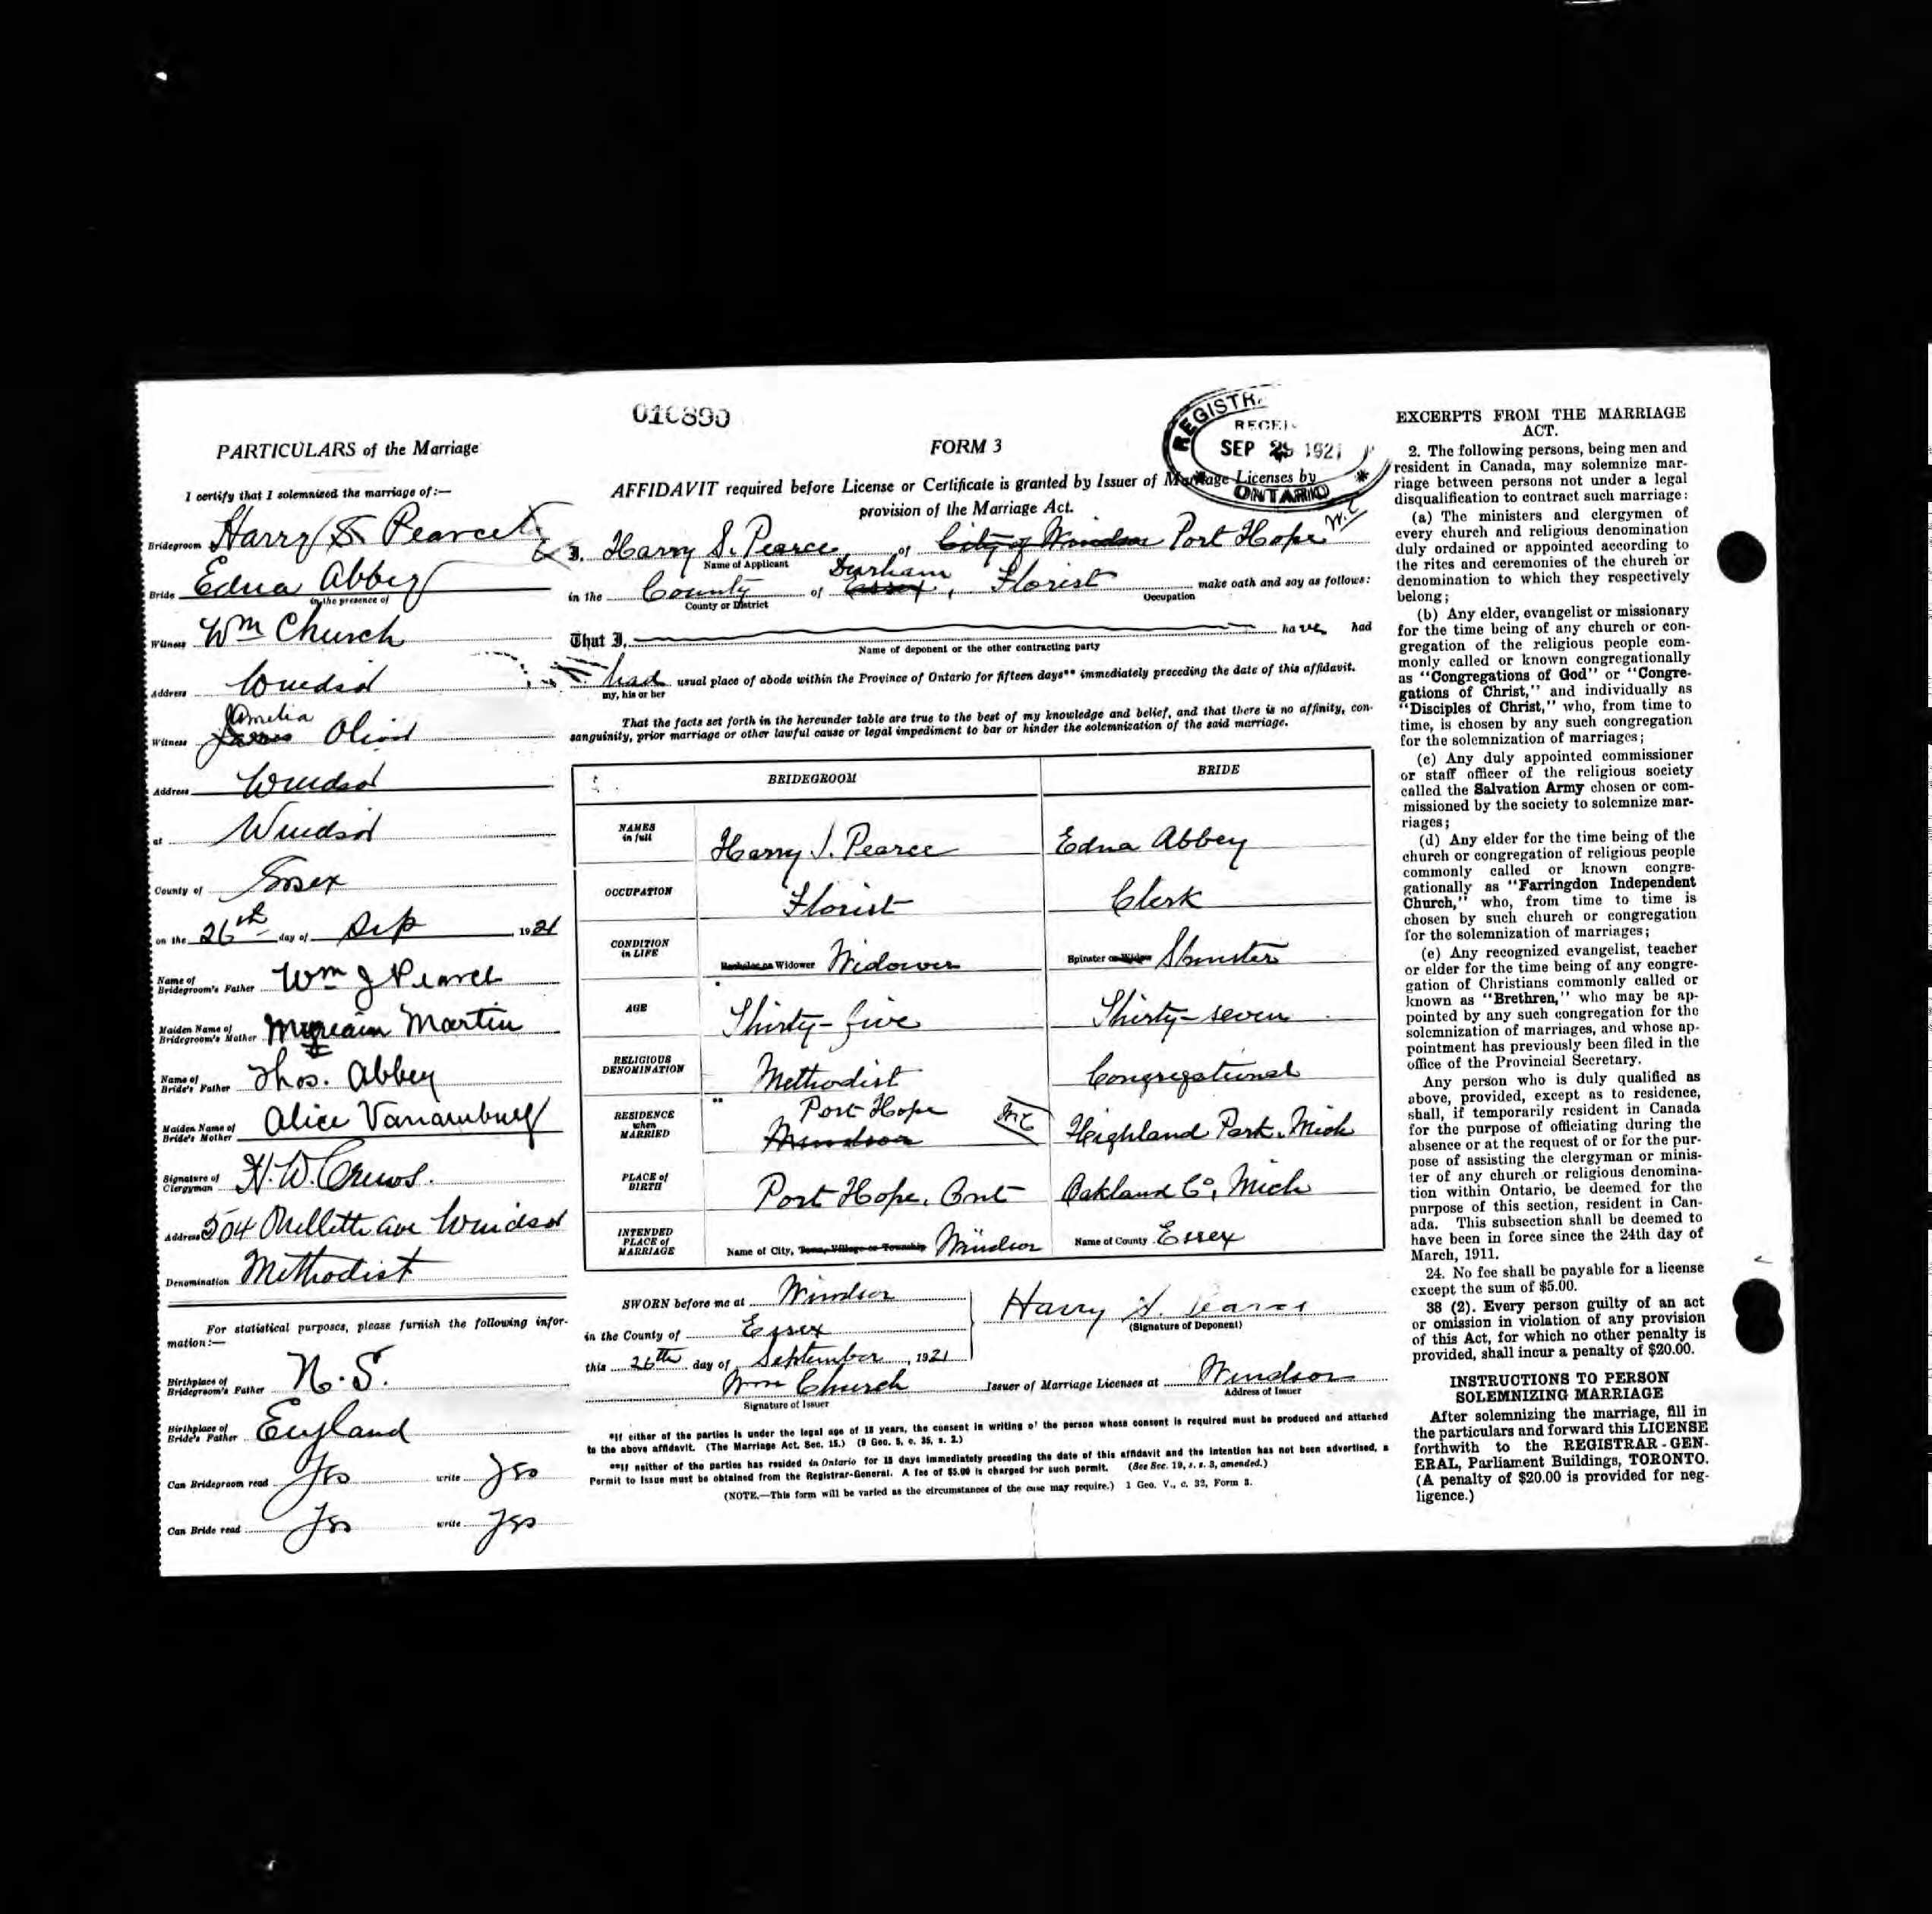 010890
PARTICULARS of the Marriage
I certify that I solemnized the marriage of:—
Bridegroom Harry S Pearce
Bride Edna Abbey
in the presence of
Witness Wm Church
Address Windsor
Witness Amelia Oliver
Address Windsor
at Windsor
County of Essex
on the 26th day of Sep 1921
Name of Bridegroom's Father Wm J Pearce
Maiden Name of Bridegroom's Mother Martin
Name of Bride's Father Thos. Abbey
Maiden Name of Bride's Mother Alice Vanamburg
Signature of Clergyman H. W. Crews.
Address 504 Ouellette ave Windsor
Denomination Methodist
For statistical purposes, please furnish the following infor-
mation:—
Birthplace of Bridegroom's Father N.S.
Birthplace of Bride's Father England
Can Bridegroom read Yes write Yes
Can Bride read Yes write Yes
FORM 3
REGISTR
RECEI
SEP 1921
ONTARIO
AFFIDAVIT required before License or Certificate is granted by Issuer of Marriage Licenses by
provision of the Marriage Act.
I, Harry S. Pearce, of City of Windsor Port Hope W.C
Name of Applicant
in the County of Essex Durham, Florist make oath and say as follows:
County or District Occupation
That I, have had
Name of deponent or the other contracting party
had usual place of abode within the Province of Ontario for fifteen days** immediately preceding the date of this affidavit.
my, his or her
That the facts set forth in the hereunder table are true to the best of my knowledge and belief, and that there is no affinity, con-
sanguinity, prior marriage or other lawful cause or legal impediment to bar or hinder the solemnization of the said marriage.
BRIDEGROOM BRIDE
NAMES in full Harry S. Pearce Edna Abbey
OCCUPATION Florist Clerk
CONDITION in LIFE Bachelor or Widower Widower Spinster or Widow Spinster
AGE Thirty-five Thirty-seven
RELIGIOUS DENOMINATION Methodist Congregational
RESIDENCE when MARRIED Port Hope Windsor W.C Highland Park, Mich
PLACE of BIRTH Port Hope, Ont Oakland Co, Mich
INTENDED PLACE of MARRIAGE Name of City, Town, Village or Township Windsor Name of County Essex
SWORN before me at Windsor
in the County of Essex
this 26th day of September, 1921
Harry S. Pearce
(Signature of Deponent)
Wm Church Issuer of Marriage Licenses at Windsor
Signature of Issuer Address of Issuer
*If either of the parties is under the legal age of 18 years, the consent in writing of the person whose consent is required must be produced and attached
to the above affidavit. (The Marriage Act. Sec. 15.) (9 Geo. 5, c. 35, s. 2.)
**If neither of the parties has resided in Ontario for 15 days immediately preceding the date of this affidavit and the intention has not been advertised, a
Permit to Issue must be obtained from the Registrar-General. A fee of $5.00 is charged for such permit. (See Sec. 19, s. s. 3, amended.)
(NOTE.—This form will be varied as the circumstances of the case may require.) 1 Geo. V., c. 32, Form 3.
EXCERPTS FROM THE MARRIAGE
ACT.
2. The following persons, being men and
resident in Canada, may solemnize mar-
riage between persons not under a legal
disqualification to contract such marriage:
(a) The ministers and clergymen of
every church and religious denomination
duly ordained or appointed according to
the rites and ceremonies of the church or
denomination to which they respectively
belong;
(b) Any elder, evangelist or missionary
for the time being of any church or con-
gregation of the religious people com-
monly called or known congregationally
as "Congregations of God" or "Congre-
gations of Christ," and individually as
"Disciples of Christ," who, from time to
time, is chosen by any such congregation
for the solemnization of marriages;
(c) Any duly appointed commissioner
or staff officer of the religious society
called the Salvation Army chosen or com-
missioned by the society to solemnize mar-
riages;
(d) Any elder for the time being of the
church or congregation of religious people
commonly called or known congre-
gationally as "Farringdon Independent
Church," who, from time to time is
chosen by such church or congregation
for the solemnization of marriages;
(e) Any recognized evangelist, teacher
or elder for the time being of any congre-
gation of Christians commonly called or
known as "Brethren," who may be ap-
pointed by any such congregation for the
solemnization of marriages, and whose ap-
pointment has previously been filed in the
office of the Provincial Secretary.
Any person who is duly qualified as
above, provided, except as to residence,
shall, if temporarily resident in Canada
for the purpose of officiating during the
absence or at the request of or for the pur-
pose of assisting the clergyman or minis-
ter of any church or religious denomina-
tion within Ontario, be deemed for the
purpose of this section, resident in Can-
ada. This subsection shall be deemed to
have been in force since the 24th day of
March, 1911.
24. No fee shall be payable for a license
except the sum of $5.00.
38 (2). Every person guilty of an act
or omission in violation of any provision
of this Act, for which no other penalty is
provided, shall incur a penalty of $20.00.
INSTRUCTIONS TO PERSON
SOLEMNIZING MARRIAGE
After solemnizing the marriage, fill in
the particulars and forward this LICENSE
forthwith to the REGISTRAR-GEN-
ERAL, Parliament Buildings, TORONTO.
(A penalty of $20.00 is provided for neg-
ligence.)